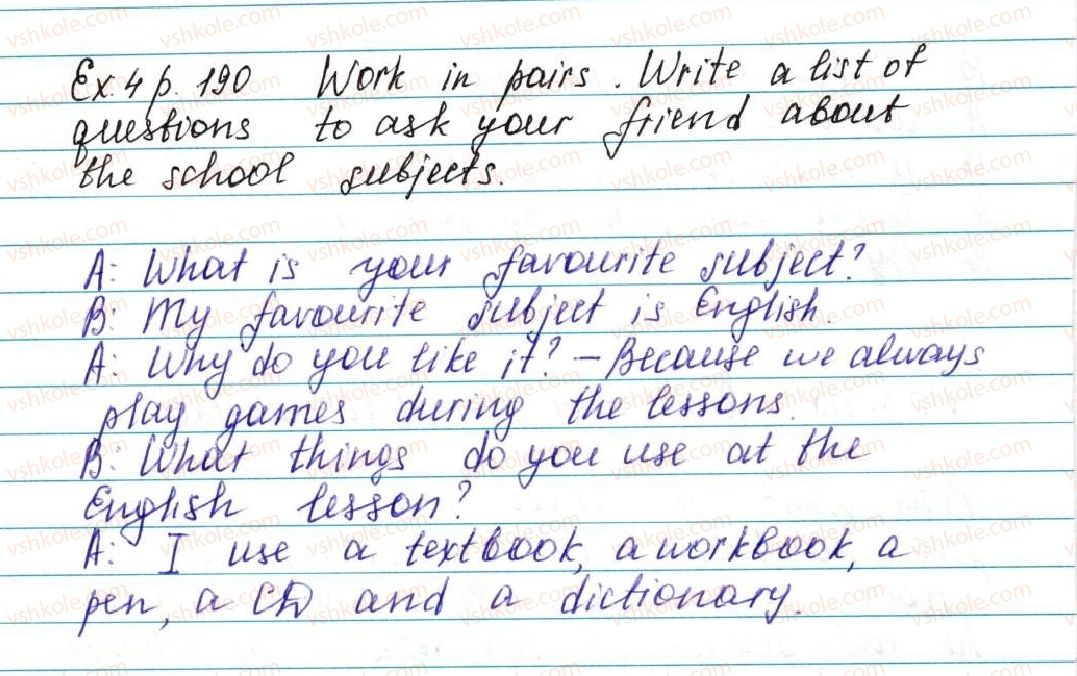 Ex. 4 p. 190 Work in pairs. Write a list of
questions to ask your friend about
the school subjects.
A: What is your favourite subject?
B: My favourite subject is English.
A: Why do you like it? – Because we always
play games during the lessons.
B: What things do you use at the
English lesson?
A: I use a textbook, a workbook, a
pen, a CD and a dictionary.